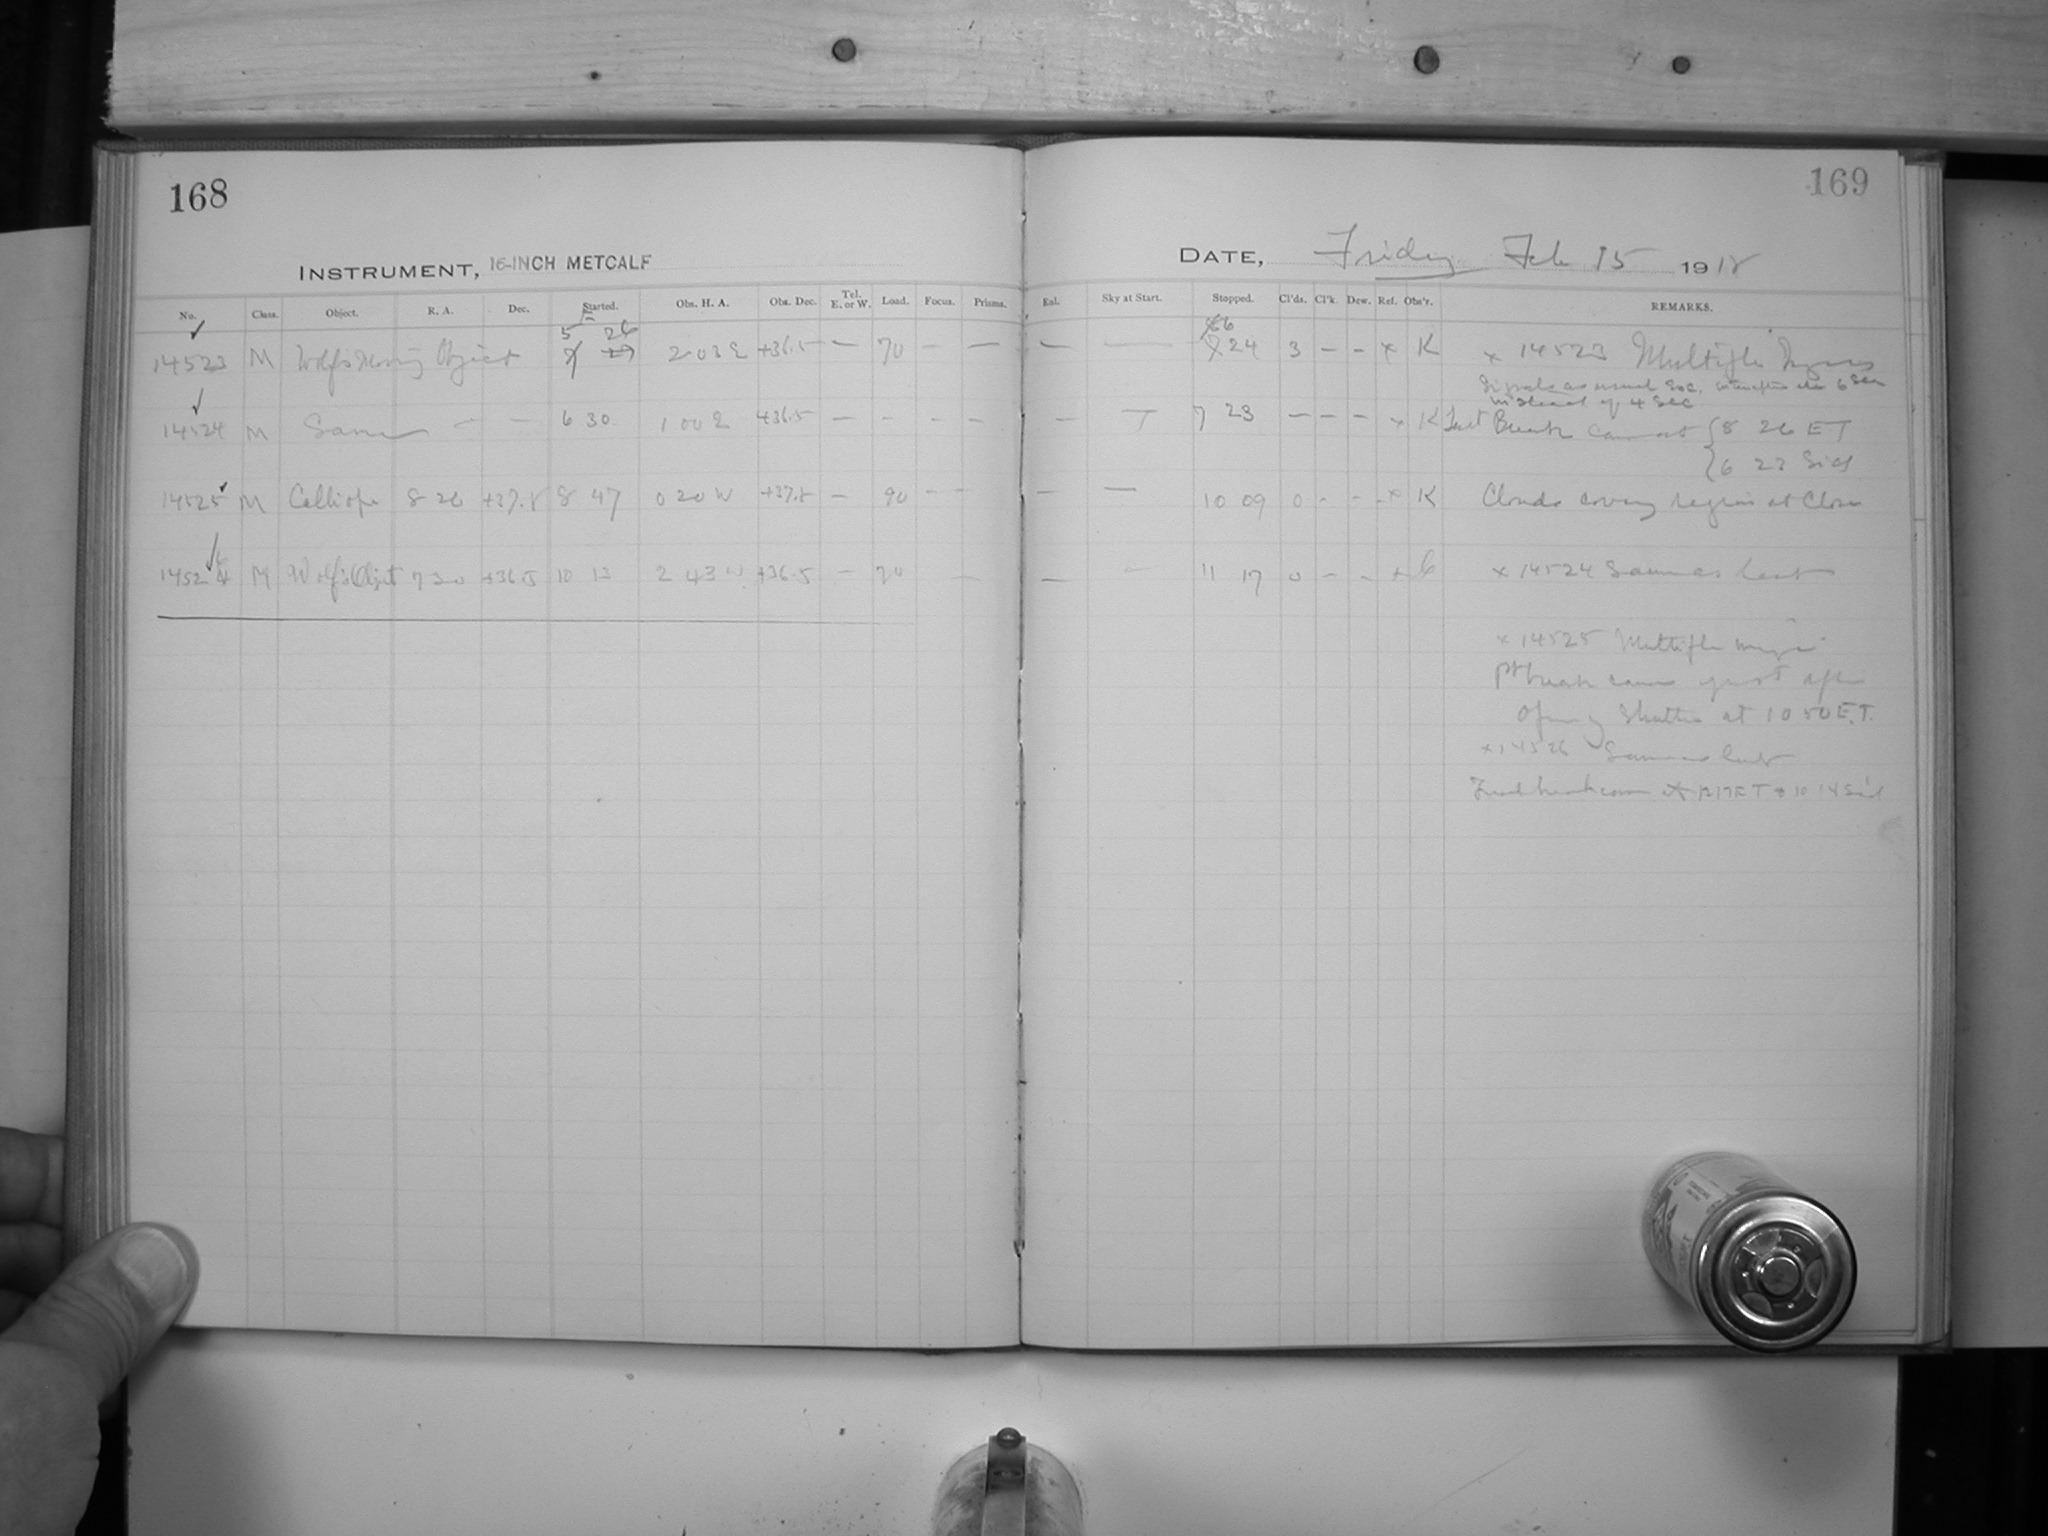 168
169
INSTRUMENT, 16-INCH METCALF
DATE, Friday Feb 15 1918
No. Class. Object. R. A. Dec. Started. Obs. H. A. Obs. Dec. Tel. E. or W. Load. Focus. Prisms. Eal. Sky at Start. Stopped. Cl'ds. Cl'k. Dew. Ref. Obs'r. REMARKS.
14523 M Wolf's Moving Object 5 26 2 03 E +36.5 — 70 — — — — 6 24 3 — — x K x 14523 Multiple
Signals as usual 6 sec
instead of 4 sec
14524 M Same — — 6 30 1 00 E +36.5 — — — — — — 7 23 — — — x K Last Break came at 8 26 ET
6 23 Sid
14525 M Calliope 8 26 +37.8 8 47 0 20 W +37.8 — 90 — — — — 10 09 0 - - x K Clouds covering region at Close
1452 M Wolf's Object 7 30 +36.5 10 13 2 43 W +36.5 — 70 — — — 11 17 0 - - x x 14524 Same as last
x 14525 Multiple
break came just after
Opening Shutter at 10 50 E.T.
x 14526 Same as last
Sid